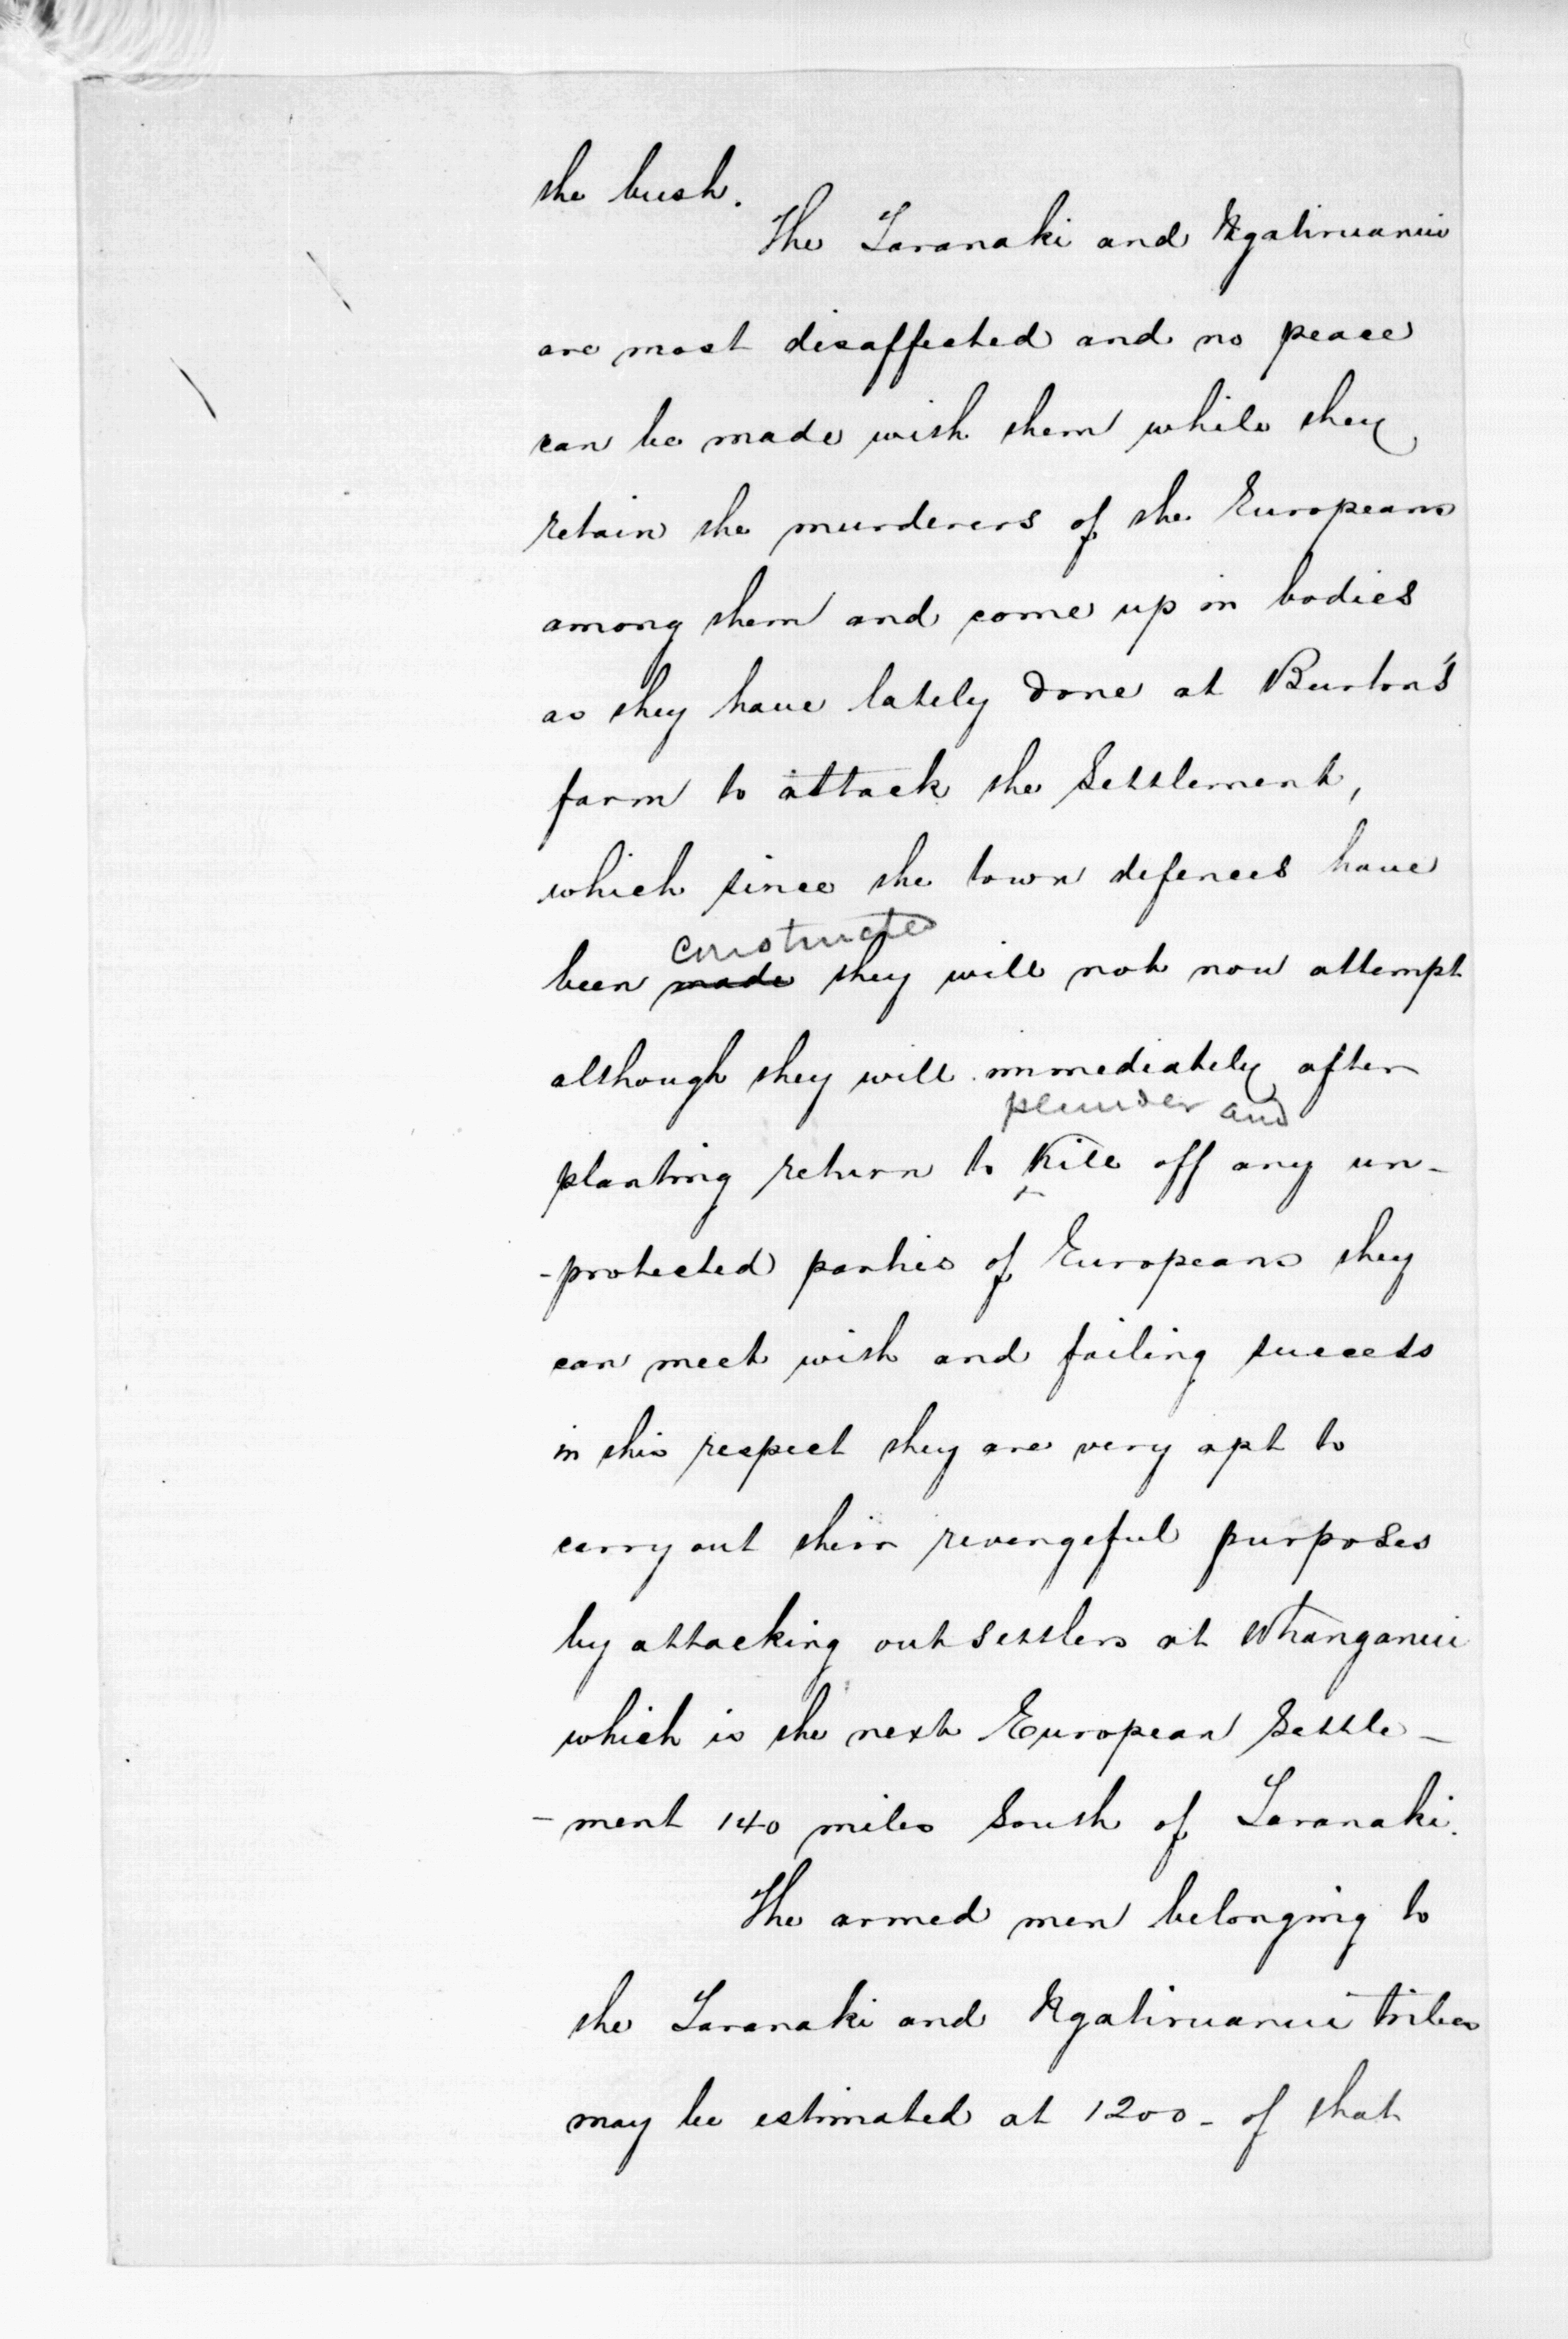 the bush.
The Taranaki and Ngatiruanui
are most disaffected and no peace
can be made with them while they
retain the murderers of the Europeans
among them and come up in bodies
as they have lately done at Burton's
farm to attack the Settlement,
which since the town defences have
constructed
been made they will not now attempt
although they will immediately after
plunder and
planting return to kill off any un-
-protected parties of Europeans they
can meet with and failing success
in this respect they are very apt to
carry out their revengeful purposes
by attacking out settlers at Whanganui
which is the next European Settle-
-ment 140 miles South of Taranaki.
The armed men belonging to
the Taranaki and Ngatiruanui tribes
may be estimated at 1200 - of that